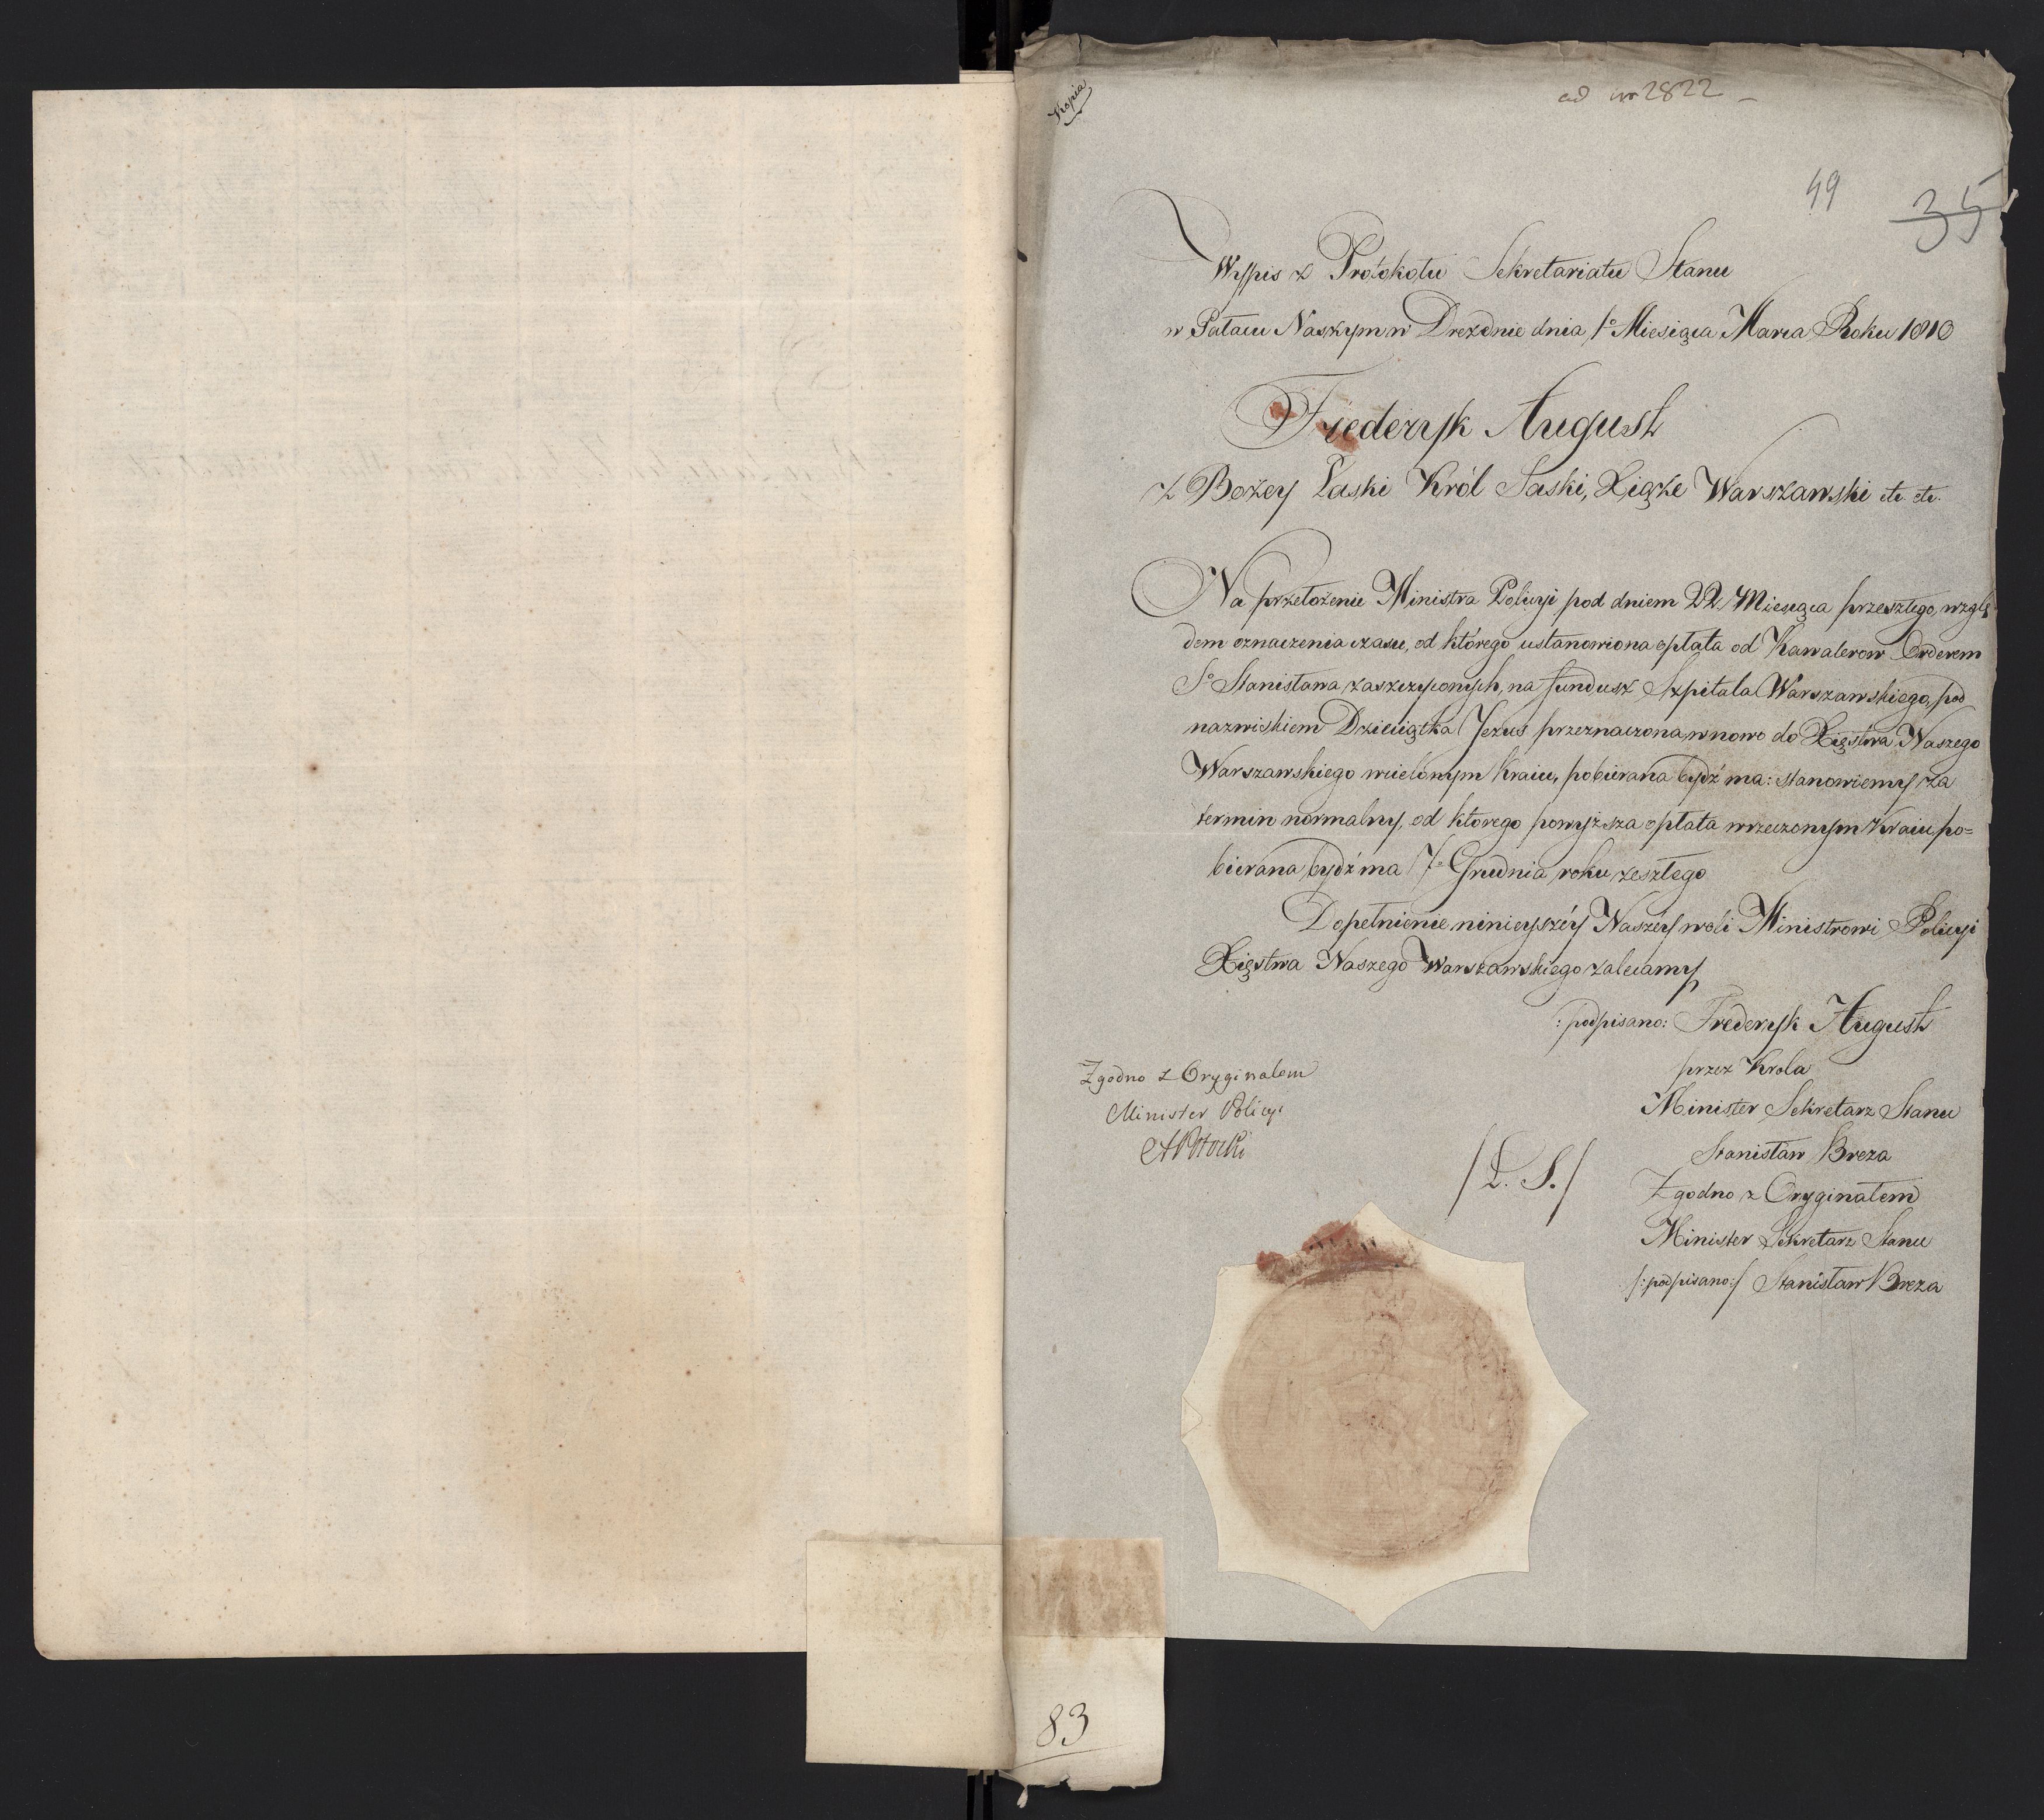 Kopia
ad nr 2822
49
35
Wypis z Protokołu Sekretariatu Stanu
w Pałacu Naszym w Dreźdnie dnia 1° Miesiąca Marca Roku 1810
Frederyk August
z Bożey Łaski Król Saski, Xiąże Warszawski etc. etc.
Na przełożenie Ministra Policyi pod dniem 22. Miesiąca przeszłego, wzglę
dem oznaczenia czasu, od którego ustanowiona opłata od Kawalerow Orderem
S° Stanisława zaszczyconych, na fundusz Szpitala Warszawskiego, pod
nazwiskiem Dzieciątka Jezus przeznaczona, w nowo do Xięstwa Naszego
Warszawskiego wcielonym Kraiu, pobierana bydź ma: stanowiemy za
termin normalny, od którego powyższa opłata w rzeczonym Kraiu po=
bierana bydź ma 1° Grudnia roku zeszłego
Dopełnienie ninieyszéy Naszéy woli Ministrowi Policyi
Xięstwa Naszego Warszawskiego zalecamy
: podpisano: Frederyk August
przez Krola
Minister Sekretarz Stanu
Stanisław Breza
Zgodno z Oryginałem
Minister Sekretarz Stanu
/:podpisano:/ Stanisław Breza
Zgodno z Oryginałem
Minister Policyi
APotocki
/L. S./
83